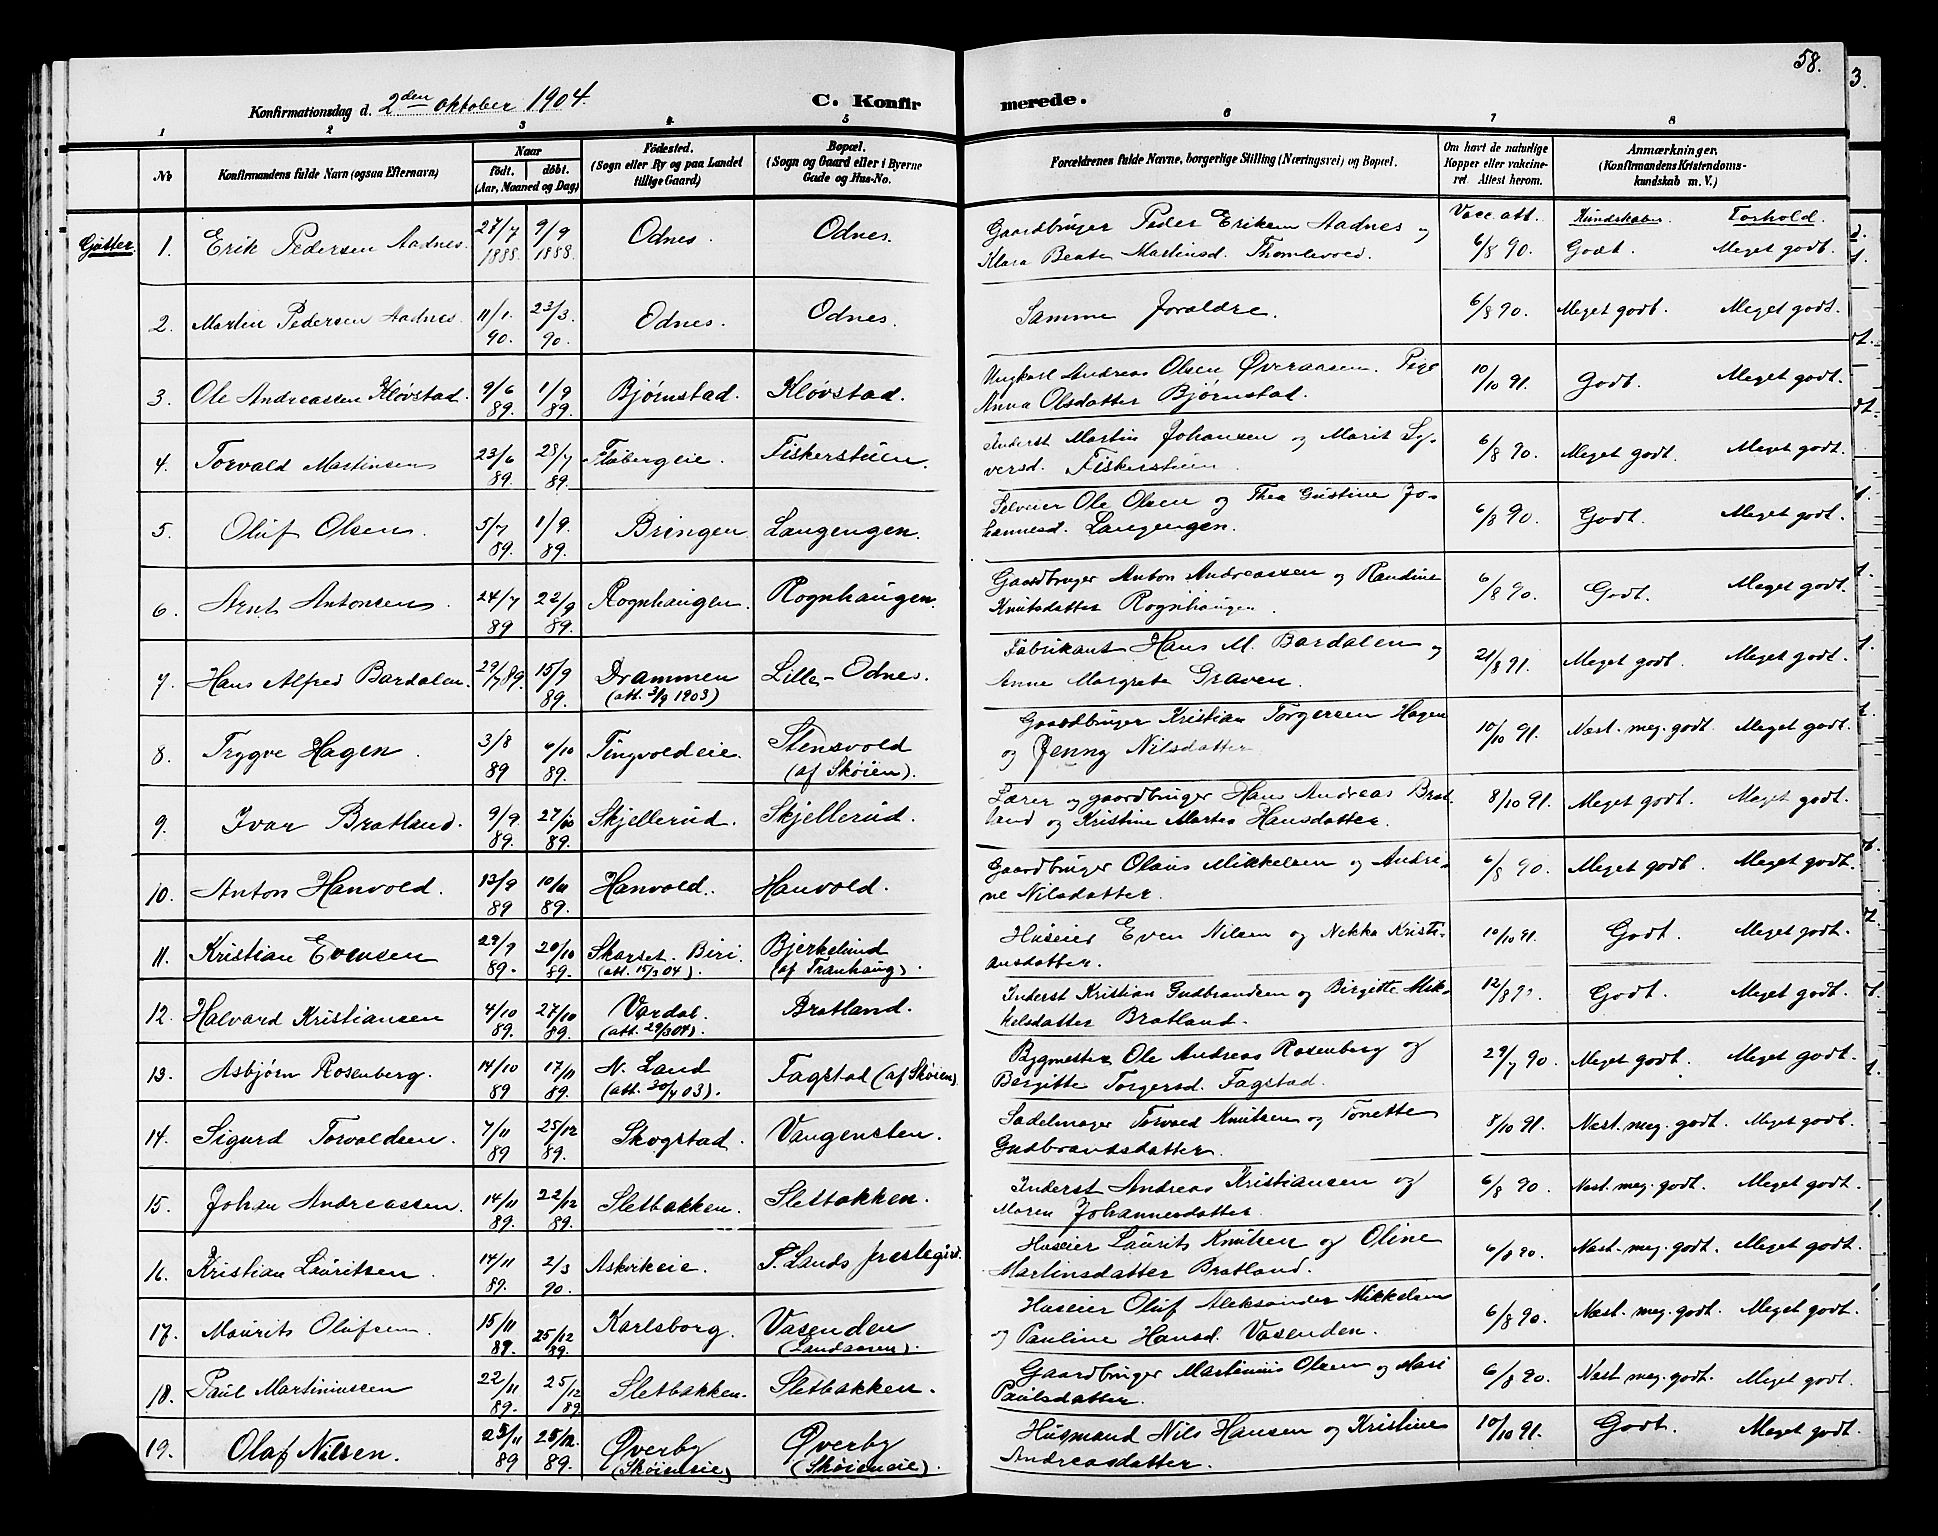 58.
3.
Konfirmationsdag d. 2den oktober 1904.
C. Konfirmerede.
1 2 3 4 5 6 7 8
No
Konfirmandens fulde Navn (ogsaa Efternavn)
Naar
født. døbt.
(Aar, Maaned og Dag)
Fødested.
(Sogn eller By og paa Landet
tillige Gaard)
Bopæl.
(Sogn og Gaard eller i Byerne
Gade og Hus-No.
Forældrenes fulde Navne, borgerlige Stilling (Næringsvei) og Bopæl.
Om havt de naturlige
Kopper eller vakcineret.
Attest herom.
Anmærkninger,
(Konfirmandens Kristendomskundskab
m. V.)
Gutter.
Vacc. att. Kundskaber. Forhold.
1. Erik Pedersen Aadnes. 27/7 1888. 9/9 1888. Odnes. Odnes. Gaardbruger Peder Eriksen Aadnes og
Klara Beate Martinsd. Thomlevold. 6/8 90. Godt. Meget godt.
2. Martin Pedersen Aadnes. 11/1. 90. 23/3. 90. Odnes. Odnes. Samme Forældre. 6/8 90. Meget godt. Meget godt.
3. Ole Andreassen Kløvstad. 9/6 89. 1/9 89. Bjørnstad. Kløvstad. Ungkarl Andreas Olsen Øveraasen. Pige
Anna Olsdatter Bjørnstad. 10/10 91. Godt. Meget godt.
4. Torvald Martinsen 23/6 89. 28/7 89. Fløbergeie. Fiskerstuen. Inderst Martin Johansen og Marit Syversd.
Fiskerstuen. 6/8 90. Meget godt. Meget godt.
5. Oluf Olsen. 5/7 89. 1/9. 89. Bringen Langengen. Selveier Ole Olsen og Thea Gustine Johannesd.
Langengen. 6/8 90. Godt. Meget godt.
6. Arnt Antonsen. 24/7 89 22/9 89. Rognhaugen. Rognhaugen. Gaardbruger Anton Andreassen og Randine
Knutsdatter Rognhaugen. 6/8 90. Godt. Meget godt.
7. Hans Alfred Bardalen. 29/7 89. 15/9 89. Drammen (att. 3/9 1903) Lille-Odnes. Fabrikant Hans M. Bardalen og
Anne Margrete Graven. 21/8 91. Meget godt. Meget godt.
8. Trygve Hagen. 3/8 89 6/10 89. Tingvoldeie. Stensvold (af Skøien). Gaardbruger Kristian Torgersen Hagen
og Jenny Nilsdatter 10/10 91. Næst. meg. godt. Meget godt.
9. Ivar Bratland. 9/9. 89. 27/10 89. Skjellerud. Skjellerud. Lærer og gaardbruger Hans Andreas Bratland
og Kristine Martea Hansdatter. 8/10 91. Meget godt. Meget godt.
10. Anton Hanvold. 13/9 89 10/11 89. Hanvold. Hanvold. Gaardbruger Olaus Mikkelsen og Andrine
Nilsdatter. 6/8 90. Meget godt. Meget godt.
11. Kristian Evensen 29/9 89. 20/10 89. Skarset. Biri. (att. 15/3 04). Bjerkelund (af Tranhaug). Huseier Even Nilsen og Nekka Kristiansdatter.
10/10 91. Godt. Meget godt.
12. Halvard Kristiansen 4/10 89. 27/10 89. Vardal. (att. 29/3 04). Bratland. Inderst Kristian Gudbrandsen og Birgitte Mikkelsdatter
Bratland. Godt. Meget godt.
13. Asbjørn Rosenberg. 14/10 89 17/11 89. N. Land (att. 30/4 03). Fagstad (af Skøien). Bygmester Ole Andreas Rosenberg og
Birgitte Torgersd. Fagstad. 29/7 90. Meget godt. Meget godt.
14. Sigurd Torvaldsen. 7/11 89 25/12 89. Skogstad. Vangensten. Sadelmager Torvald Knutsen og Tonette
Gudbrandsdatter. 8/10 91. Næst. meg. godt. Meget godt.
15. Johan Andreassen. 14/11 89. 22/12 89. Sletbakken. Sletbakken. Inderst Andreas Kristiansen og
Maren Johannesdatter. 6/8 90. Næst. meg. godt. Meget godt.
16. Kristian Lauritsen. 14/11 89. 2/3 90. Askvikeie. S. Lands prestegård. Huseier Laurits Knutsen og Oline
Martinsdatter Bratland. 6/8 90. Næst. meg. godt. Meget godt.
17. Maurits Olufsen. 15/11 89. 25/12 89. Karlsborg. Vasenden (Landaasen). Huseier Oluf Aleksander Mikkelsen
og Pauline Hansd. Vasenden. 6/8 90. Næst. meg. godt. Meget godt.
18. Paul Martiniussen 22/11 89. 25/12 89 Sletbakken. Sletbakken. Gaardbruger Martinius Olsen og Mari
Paulsdatter. 6/8 90. Næst. meg. godt. Meget godt.
19. Olaf Nilsen. 23/11 89 25/12. 89. Øverby (Skøieneie) Øverby (Skøieneie). Husmand Nils Hansen og Kristine
Andreasdatter. 10/10 91. Godt. Meget godt.